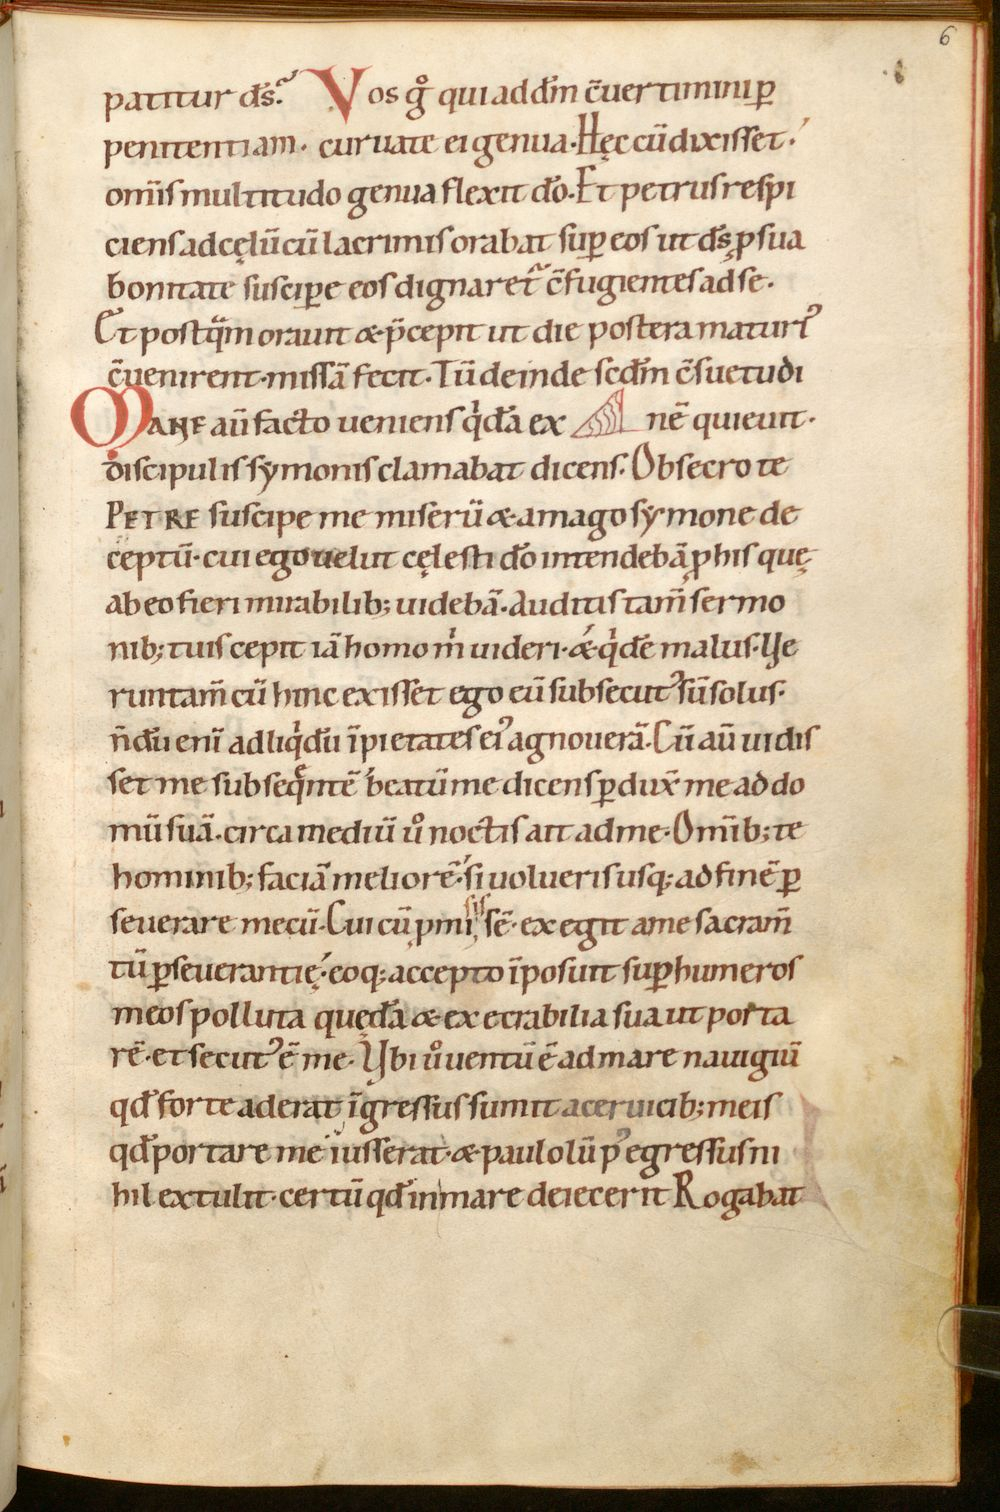 6
patitur ds̄. Vos gͦ qui ad dm̄ c̄uertimini ꝑ
penitentiam. curuate ei genua. Hęc cū dixisset.
om̄is multitudo genua flexit dō. Et petrus respi
ciens ad cęlū cū lacrimis orabat suꝑ eos ut ds̄ ꝓ sua
bonitate susciꝑe eos dignaret᷑ c̄fugientes ad se.
Et postq̄m orauit & p̄cepit ut die postera maturi᾿
c̄uenirent. missā fecit. Tū deinde scdm̄ c̄suetudi
Mane aū facto ueniens q̍dā ex nē quieuit.
discipulis symonis clamabat dicens. Obsecro te
PETRE suscipe me miserū & a mago symone de
ceptū. cui ego uelut cęlesti dō intendebā ꝓ his quę
ab eo fieri mirabilib; uidebā. Auditis tam̄ sermo
nib; tuis cepit iā homo m̍ uideri. & q̍dē malus. Ve
runtam̄ cū hinc exisset ego eū subsecut᾿ sū solus.
n̄dū enī ad liq̍dū īpietates ei᾿ agnouerā. Cū aū uidis
set me subseq̄ntē beatū me dicens ꝑdux̄ me ad do
mū suā. circa mediū uͦ noctis ait ad me. Om̄ib; te
hominib; faciā meliorē. si uolueris usq; ad finē ꝑ
seuerare mecū. Cui cū ꝓmisissē. exegit a me sacram̄
tū ꝑseuerantię. eoq; accepto īposuit suꝑ humeros
meos polluta quędā & execrabilia sua ut porta
rē. et secut᾿ ē me. Vbi uͦ uentū ē ad mare nauigiū
qd̄ forte aderat īgressus sumit a ceruicib; meis
qd̄ portare me iusserat. & paulolū p᾿ egressus ni
hil extulit. certū qd̄ in mare deiecerit Rogabat